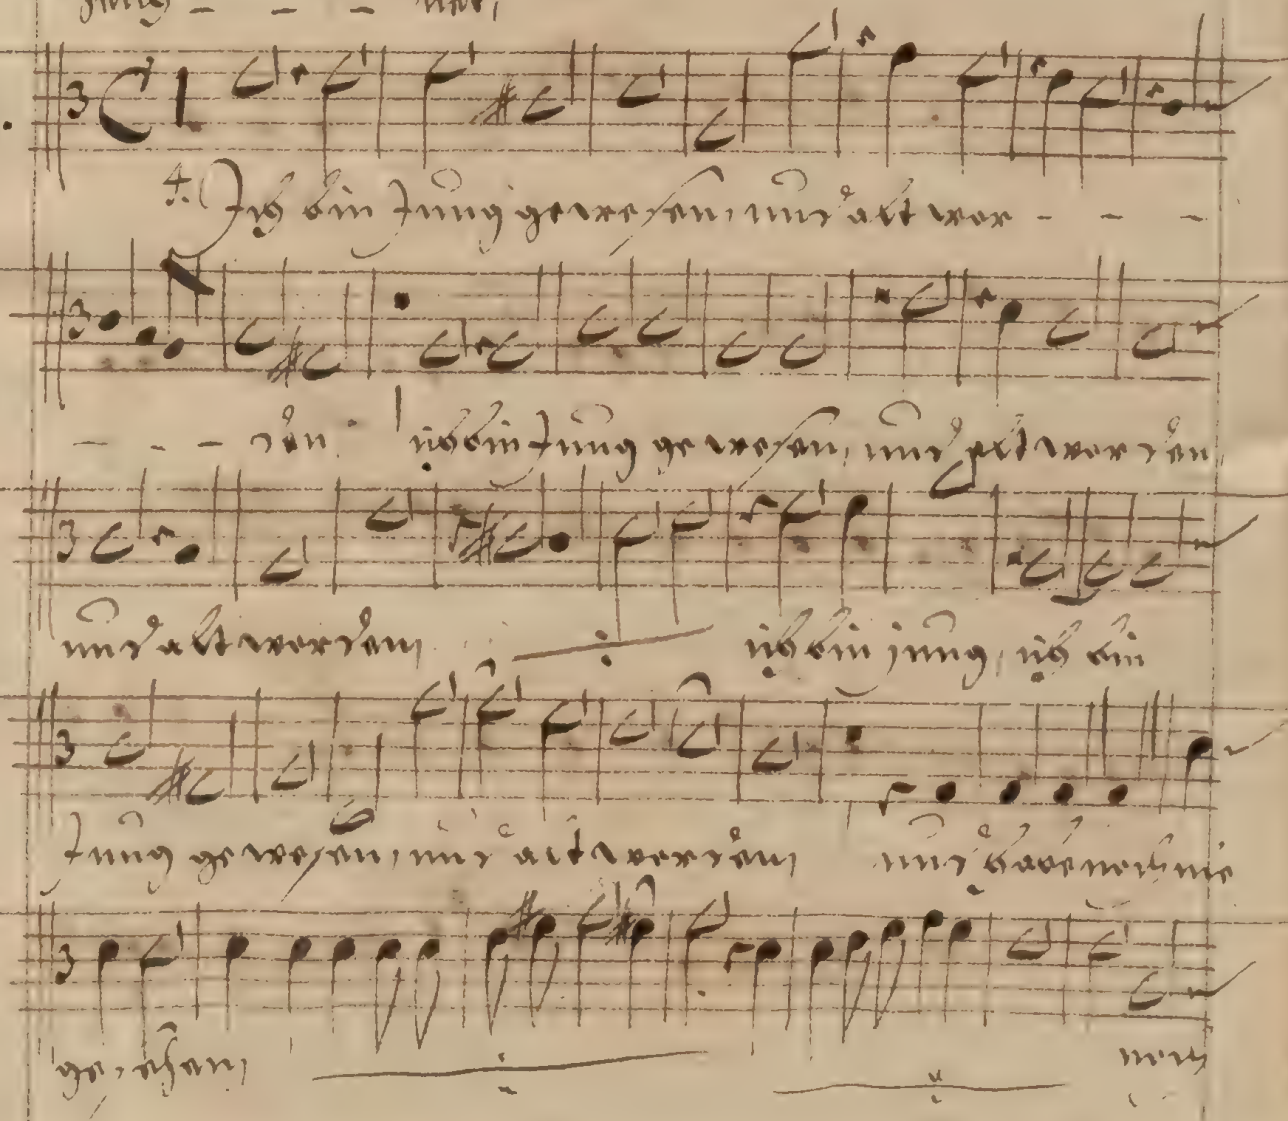 jung - - - ner,
4. Ich bin Jung gewesen, und alt wor - - -
- - - den ich bin Jung gewesen, und alt worden,
und alt worden, ich bin jung, ich bin
Jung gewesen, und alt worden, und habe noch nie
gesehen, noch